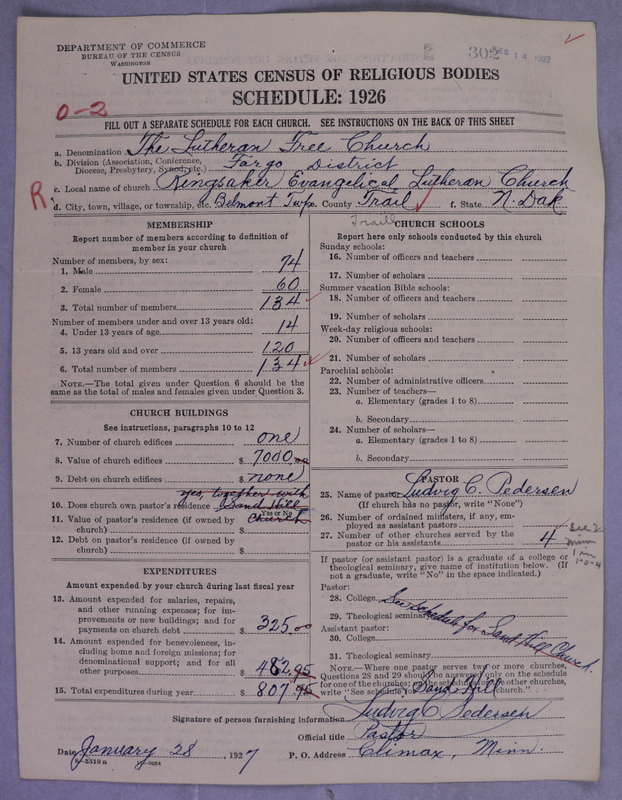 DEPARTMENT OF COMMERCE
BUREAU OF THE CENSUS
WASHINGTON
302
UNITED STATES CENSUS OF RELIGIOUS BODIES
SCHEDULE: 1926
0-2
FILL OUT A SEPARATE SCHEDULE FOR EACH CHURCH. SEE INSTRUCTIONS ON THE BACK OF THIS SHEET
a. Denomination The Lutheran Free Church
b. Division (Association, Conference, Diocese, Presbytery, Synod, etc.) Fargo District
c. Local name of church Ringsaker Evangelical Lutheran Church
R.
d. City, town, village, or township, etc. Belmont Twp. e. County Trail f. State N. Dak
Traill
MEMBERSHIP
Report number of members according to definition of
member in your church
Number of members, by sex:
1. Male 74
2. Female 60
3. Total number of members 134
Number of members under and over 13 years old:
4. Under 13 years of age 14
5. 13 years old and over 120
6. Total number of members 134
NOTE.—The total given under Question 6 should be the
same as the total of males and females given under Question 3.
CHURCH BUILDINGS
See instructions, paragraphs 10 to 12
7. Number of church edifices one
8. Value of church edifices $ 7000.00
9. Debt on church edifices $ none
yes, together with
10. Does church own pastor's residence Sand Hill
Yes or No
11. Value of pastor's residence (if owned by Church
church) $
12. Debt on pastor's residence (if owned by
church) $
EXPENDITURES
Amount expended by your church during last fiscal year
13. Amount expended for salaries, repairs,
and other running expenses; for im-
provements or new buildings; and for
payments on church debt $ 325.00
14. Amount expended for benevolences, in-
cluding home and foreign missions; for
denominational support; and for all
other purposes $ 482.95
15. Total expenditures during year $ 807.95
CHURCH SCHOOLS
Report here only schools conducted by this church
Sunday schools:
16. Number of officers and teachers
17. Number of scholars
Summer vacation Bible schools:
18. Number of officers and teachers
19. Number of scholars
Week-day religious schools:
20. Number of officers and teachers
21. Number of scholars
Parochial schools:
22. Number of administrative officers
23. Number of teachers—
a. Elementary (grades 1 to 8)
b. Secondary
24. Number of scholars—
a. Elementary (grades 1 to 8)
b. Secondary
PASTOR
25. Name of pastor Ludvig C. Pedersen
(If church has no pastor, write "None")
26. Number of ordained ministers, if any, em-
ployed as assistant pastors
27. Number of other churches served by the
pastor or his assistants 4
If pastor (or assistant pastor) is a graduate of a college or
theological seminary, give name of institution below. (If
not a graduate, write "No" in the space indicated.)
Pastor:
28. College See Schedule for Sand Hill Church.
29. Theological seminary
Assistant pastor:
30. College
31. Theological seminary
NOTE.—Where one pastor serves two or more churches,
Questions 28 and 29 should be answered only on the schedule
for one of the churches; on the schedules for the other churches,
write "See schedule for Sand Hill church."
Signature of person furnishing information Ludvig C Pedersen
Official title Pastor
Date January 28, 1927 P. O. Address Climax, Minn.